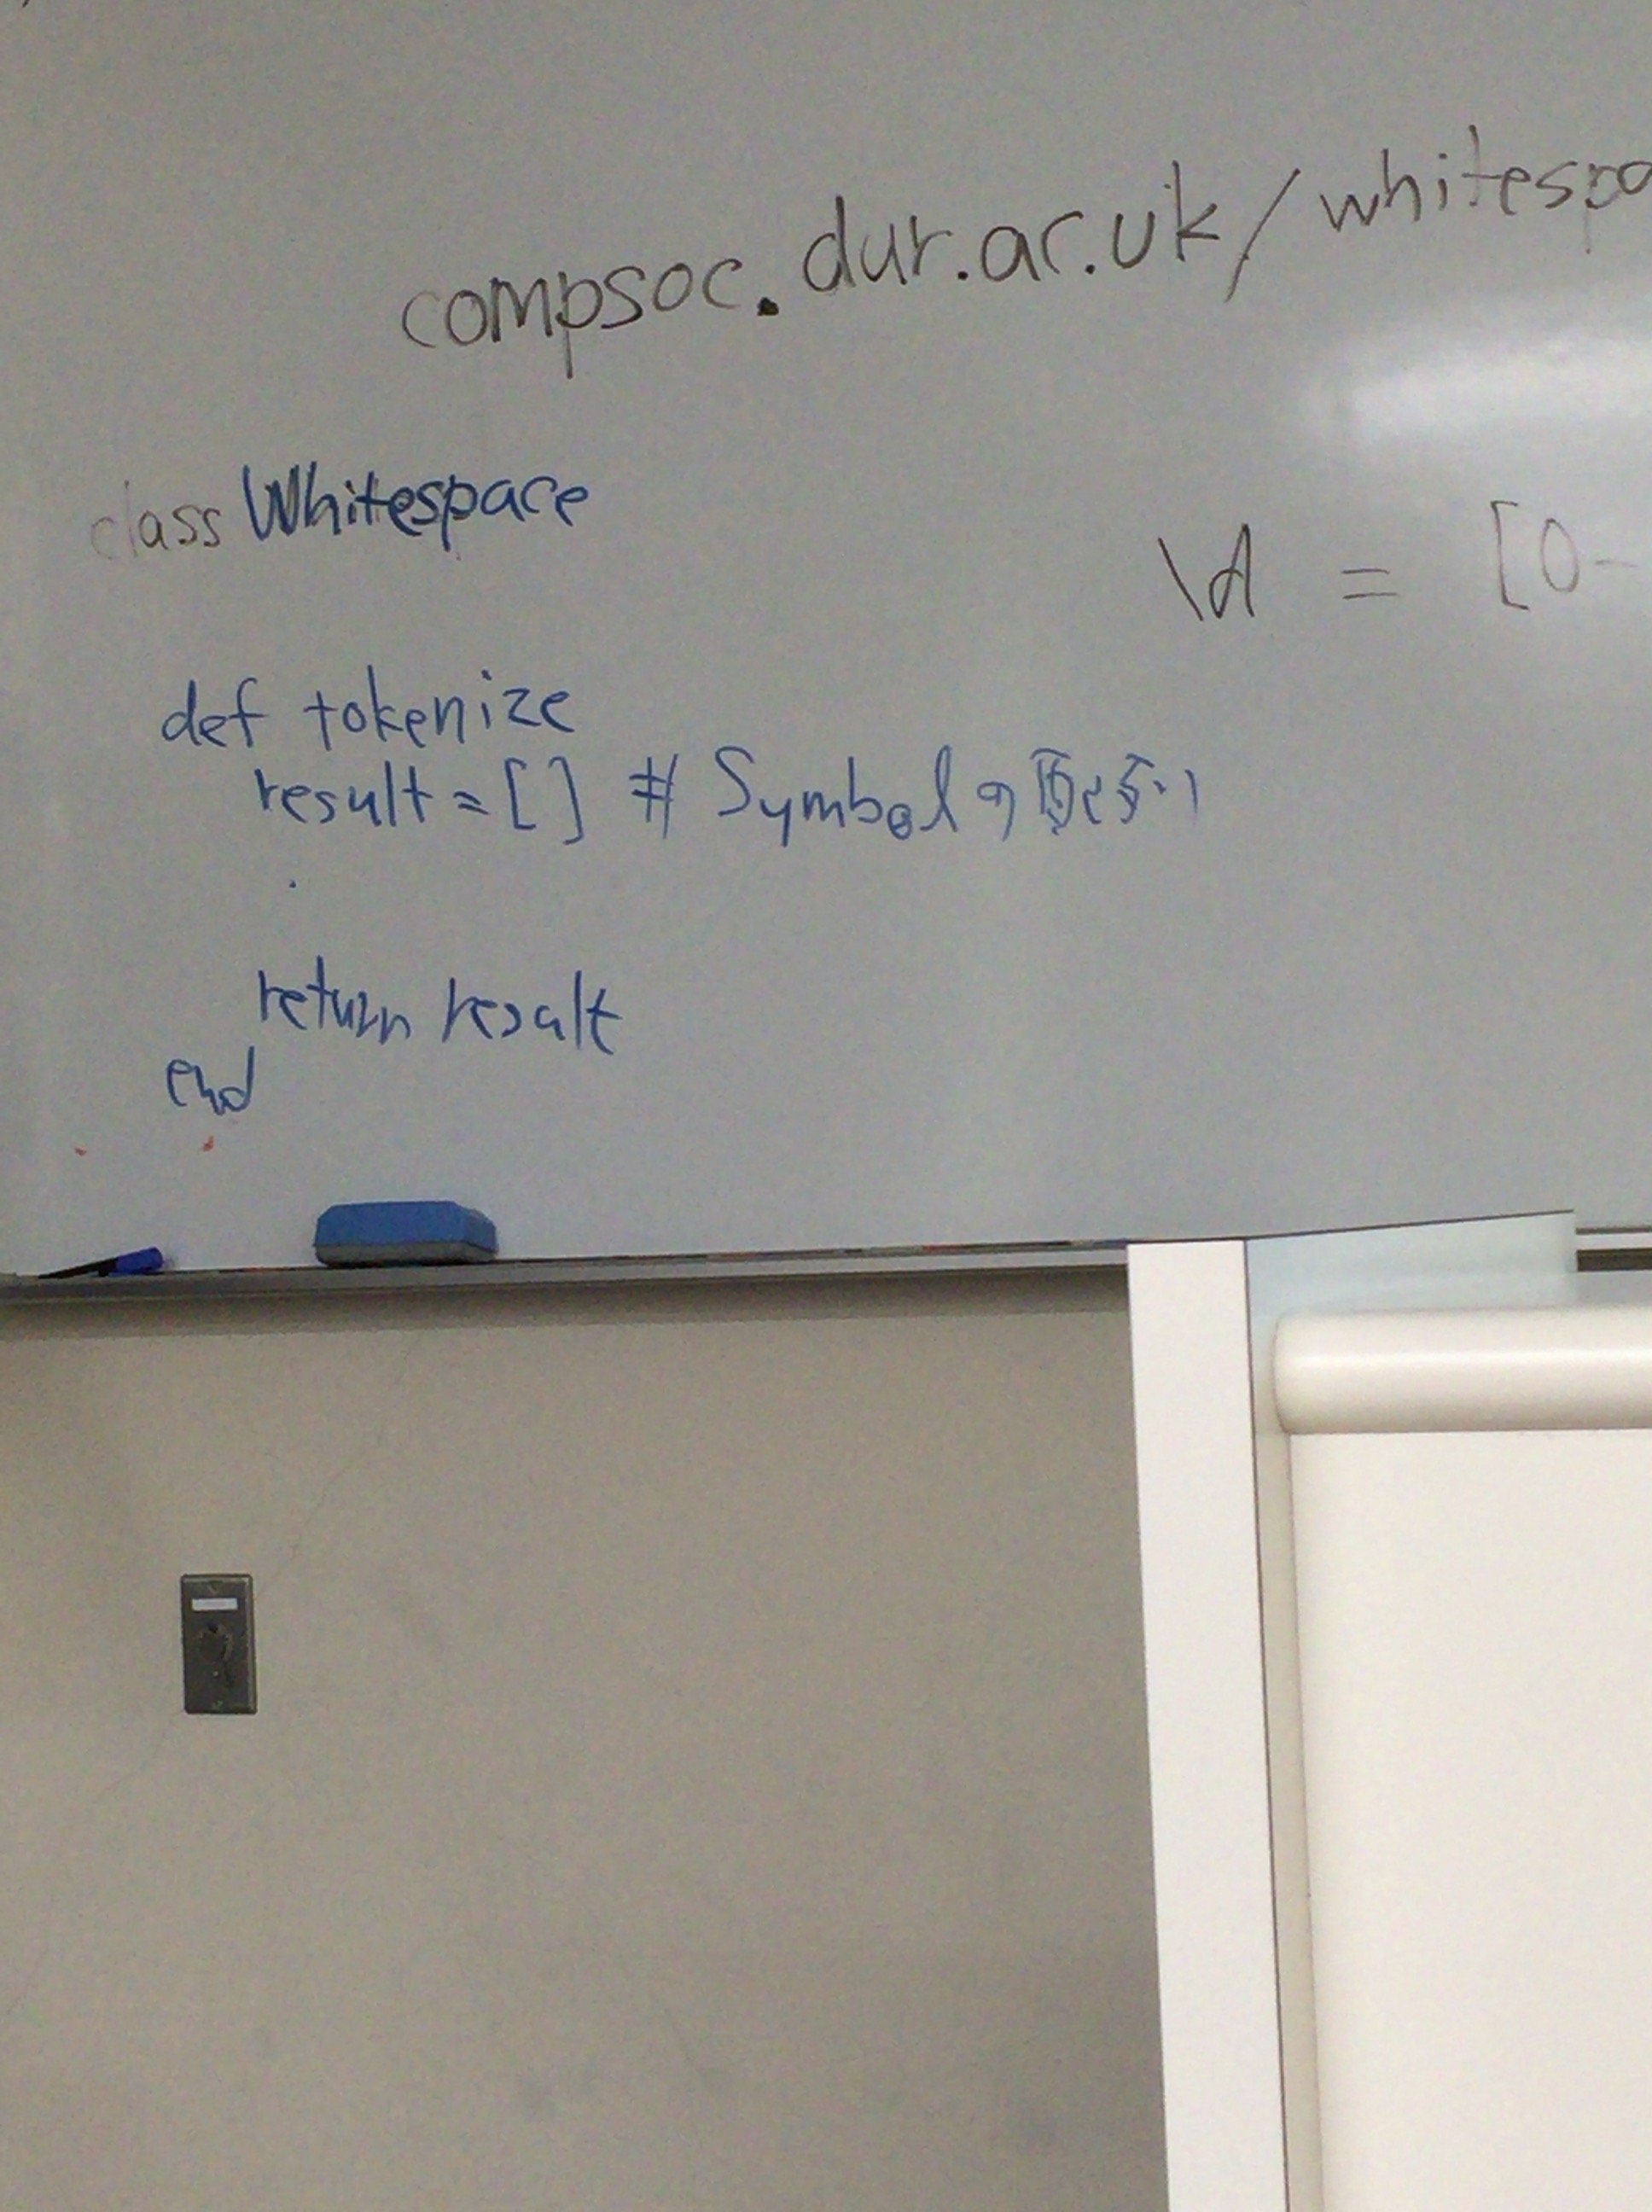 compsoc.dur.ac.uk/whitespa
class Whitespace
\d = [0-
def tokenize
result = [] # Symbolの
return result
end